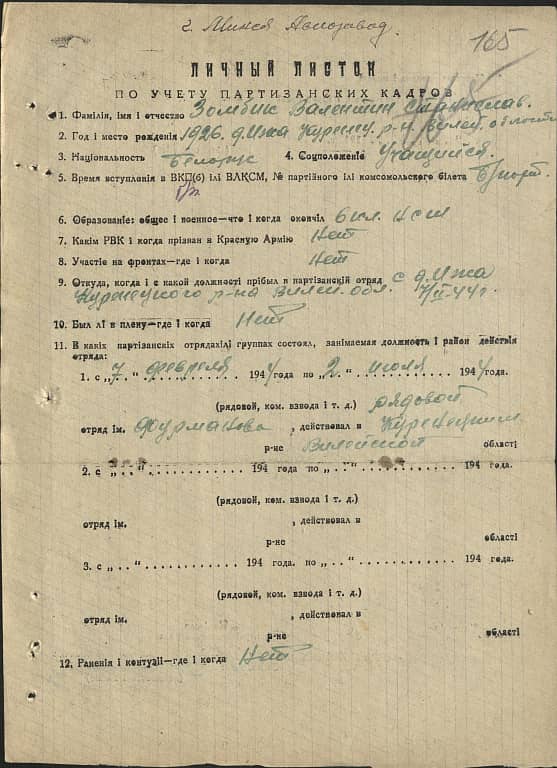 г. Минск Автозавод.
165
ЛИЧНЫЙ ЛИСТОК
ПО УЧЕТУ ПАРТИЗАНСКИХ КАДРОВ
1. Фамілія, імя і отчество Зомбик Валентин Станислав.
2. Год і место рождения 1926. д. Ижа Куренец. р-н Вилей. области
3. Національность Белорус 4. Соцположеніе Учащийся.
5. Время вступления в ВКП(б) ілі ВЛКСМ, № партійного ілі комсомольского білета Б/парт.
б/п
6. Образованіе: общее і военное—что і когда окончіл 6 кл. НСШ
7. Какім РВК і когда прізван в Красную Армію Нет
8. Участіе на фронтах—где і когда Нет
9. Откуда, когда і с какой должності прібыл в партізанскій отряд с д. Ижа
Куренецкого р-на Вилей. обл. 7/II-44 г.
10. Был лі в плену—где і когда Нет
11. В какіх партізанскіх отрядах(ілі группах состоял, занімаемая должность і район действія
отряда:
1. с „7.." февраля 1944 года по „2.." июля 1944 года.
(рядовой, ком. взвода і т. д.) рядовой
отряд ім. Фурманова, действовал в Куренецким
р-не Вилейской області
2. с „.." 194 года по „.." 194 года.
(рядовой, ком. взвода і т. д.)
отряд ім. , действовал в
р-не області
3. с „.." 194 года. по „.." 194 года.
(рядовой, ком. взвода і т. д.)
отряд ім. , действовал в
р-не області
12. Раненія і контузіі—где і когда Нет